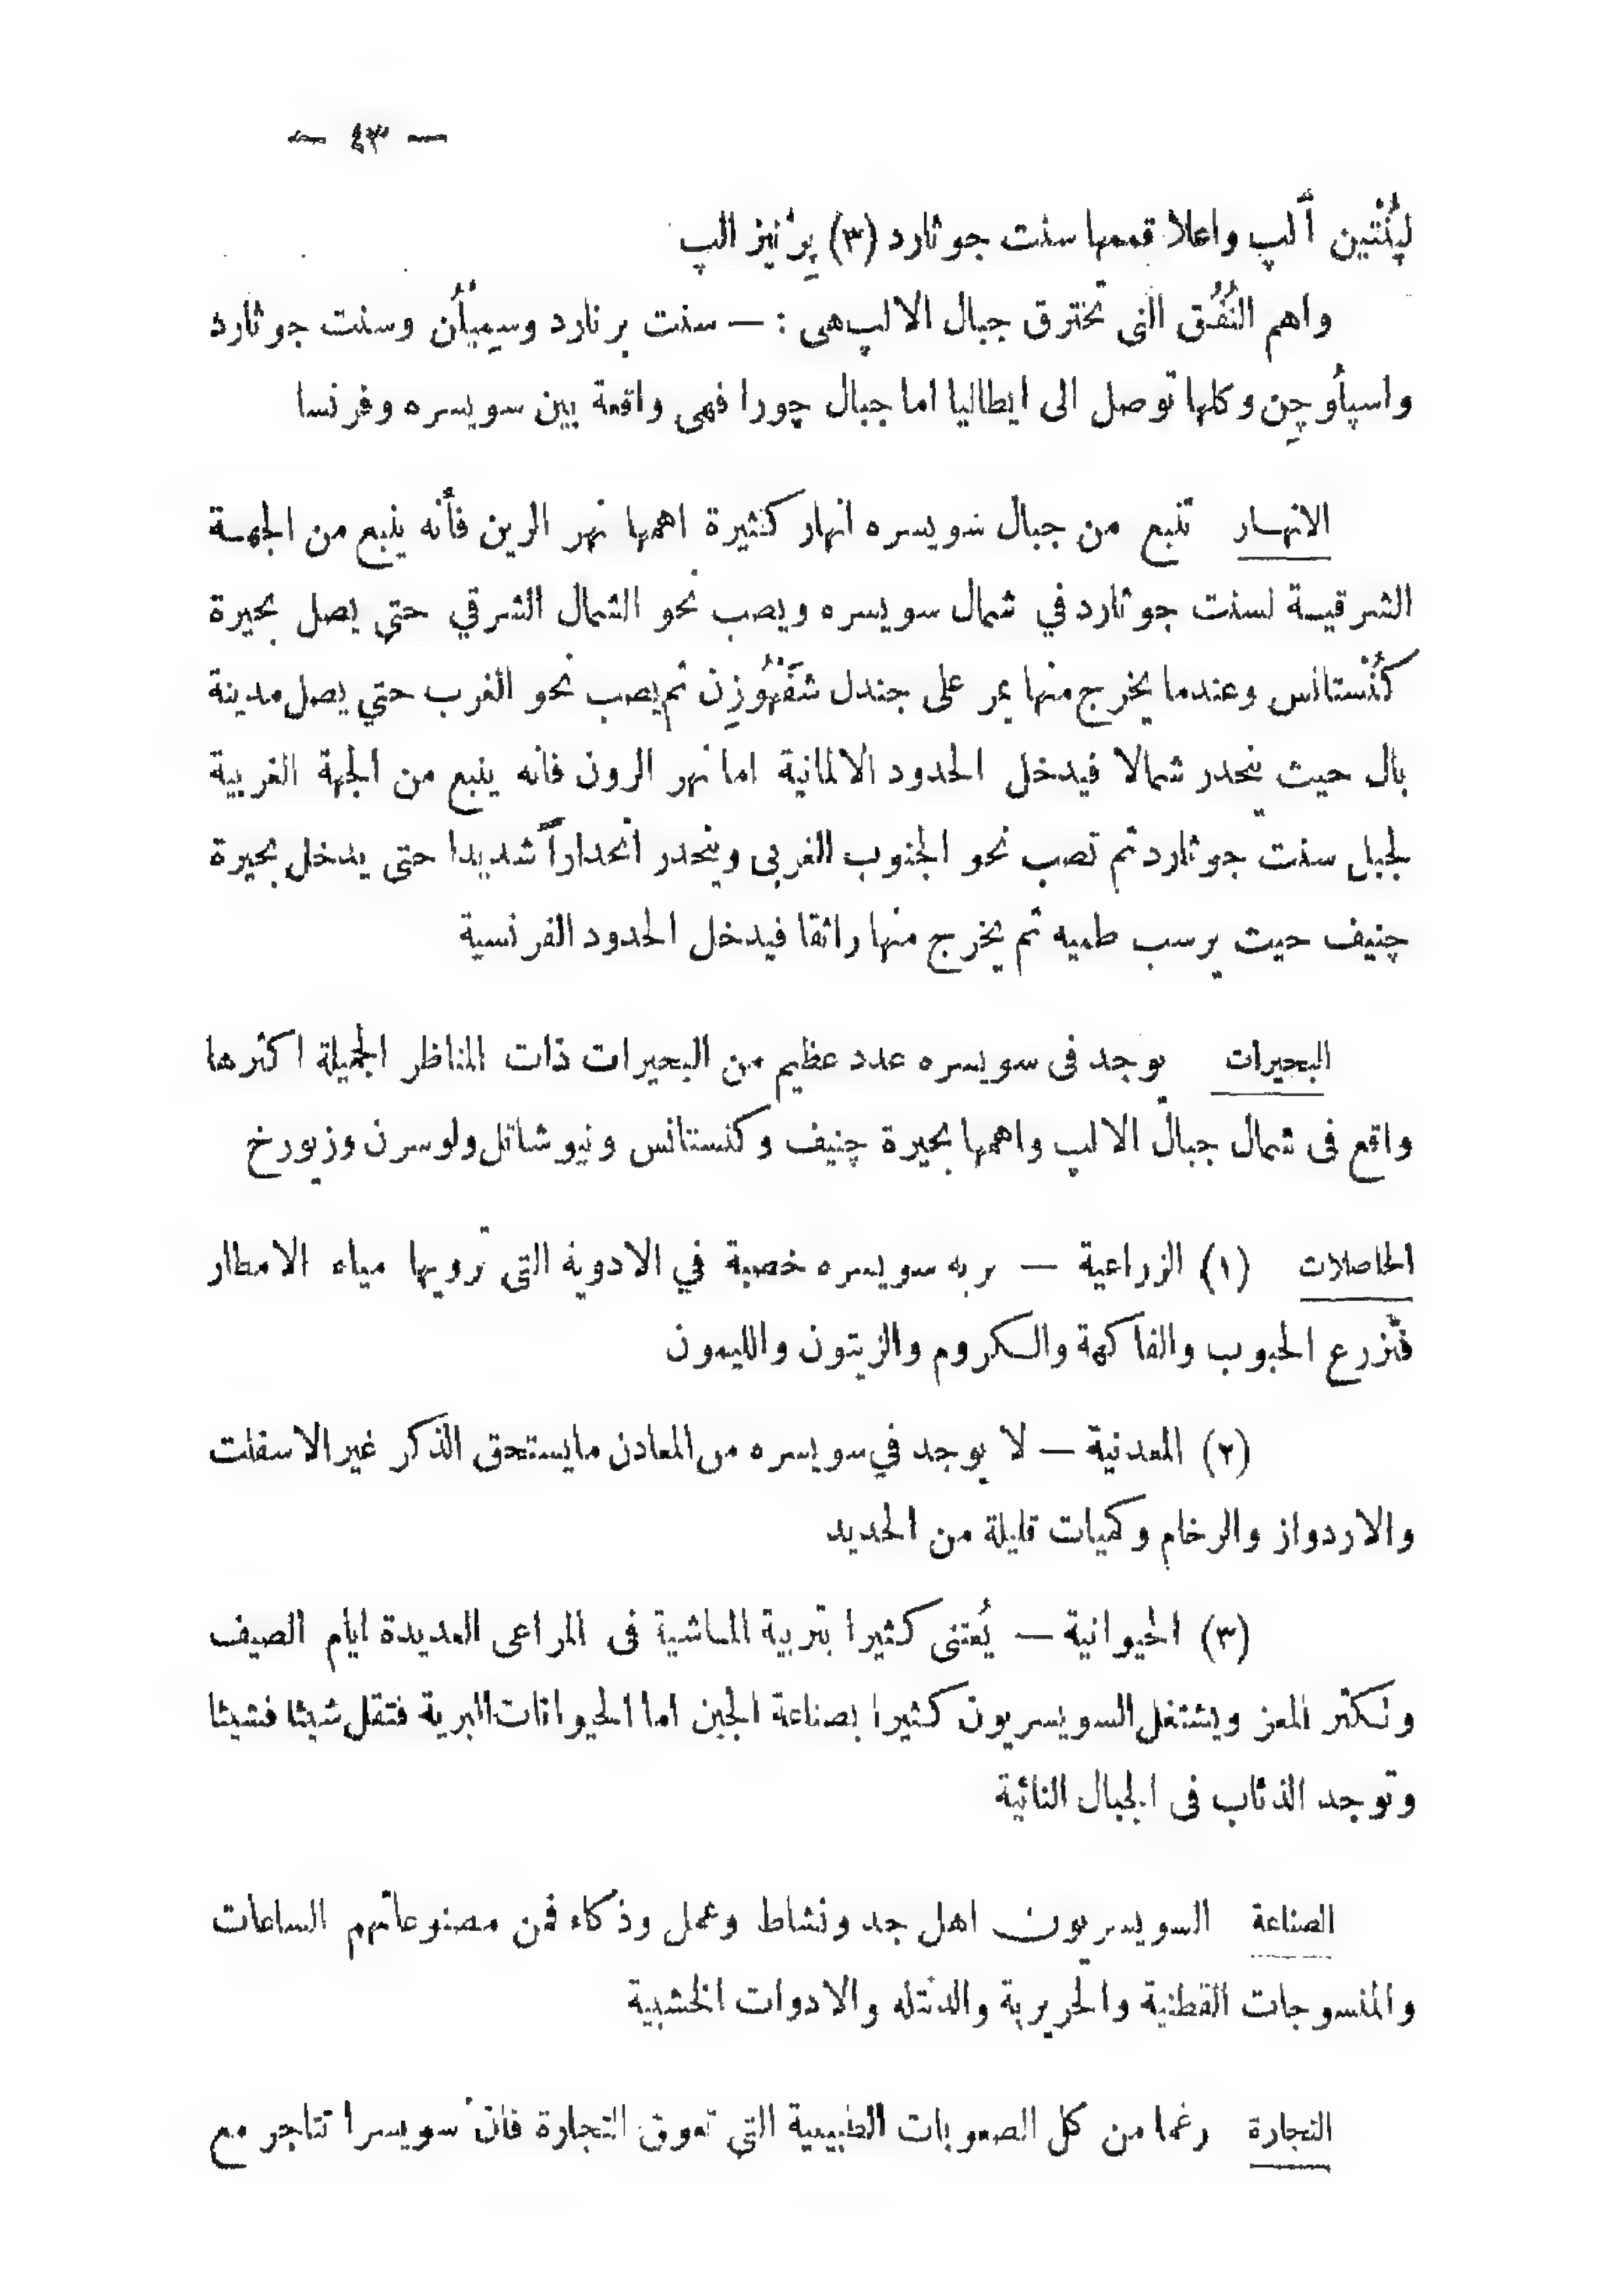 — ٤٣ —
لِپُنْتين ألپ واعلا قممها سنت جوثارد (٣) پِرْنيز الپ
واهم النُفُق التى تخترق جبال الالپ هى : — سنت برنارد وسِمپْلُن وسنت جوثارد
واسپلُوچِن وكلها توصل الى ايطاليا اما جبال چورا فهى واقعة بين سويسره وفرنسا
الانهار تنبع من جبال سويسره انهار كثيرة اهمها نهر الرين فأنه ينبع من الجهة
الشرقية لسنت جوثارد في شمال سويسره ويصب نحو الشمال الشرقي حتى يصل بحيرة
كُنْستانس وعندما يخرج منها يمر على جندل شَفْهُوزِن ثم يصب نحو الغرب حتي يصل مدينة
بال حيث ينحدر شمالا فيدخل الحدود الالمانية اما نهر الرون فانه ينبع من الجهة الغربية
لجبل سنت جوثارد ثم تصب نحو الجنوب الغربى وينحدر انحداراً شديدا حتى يدخل بحيرة
چنيف حيت يرسب طميه ثم يخرج منها رائقا فيدخل الحدود الفرنسية
البحيرات يوجد فى سويسره عدد عظيم من البحيرات ذات المناظر الجميلة اكثرها
واقع فى شمال جبال الالپ واهمها بحيرة چنيف وكنستانس ونيوشاتل ولوسرن وزيورخ
الحاصلات (١) الزراعية — تربه سويسره خصبة في الادوية التى ترويها مياه الامطار
فتزرع الحبوب والفاكهة والكروم والزيتون والليمون
(٢) المعدنية — لا يوجد في سويسره من المعادن مايستحق الذكر غير الاسفلت
والاردواز والرخام وكميات قليلة من الحديد
(٣) الحيوانية — يُعتنى كثيرا بتربية الماشية فى المراعى العديدة ايام الصيف
وتكثر المعز ويشتغل السويسريون كثيرا بصناعة الجبن اما الحيوانات البرية فتقل شيئا فشيئا
وتوجد الذئاب فى الجبال النائية
الصناعة السويسريون اهل جد ونشاط وعمل وذكاء فمن مصنوعاتهم الساعات
والمنسوجات القطنية والحريرية والدنتله والادوات الخشبية
التجارة رغما من كل الصعوبات الطبيعية التى تعوق التجارة فان سويسرا تتاجر مع